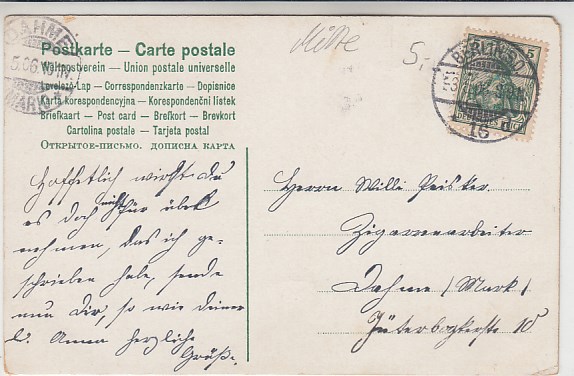 Postkarte — Carte postale
Weltpostverein — Union postale universelle
Levelező-Lap — Correspondenzkarte — Dopisnice
Karta korespondencyjna — Korespondenční lístek
Briefkaart — Post card — Brefkort — Brevkort
Cartolina postale — Tarjeta postal
ОТКРЫТОЕ-ПИСЬМО. ДОПИСНА КАРТА
Mitte
5,-
DAHME
(MARK)
BERLIN S.O.
16
5
Hoffentlich wirst du
es doch nicht für übel
nehmen, das ich ge-
schrieben habe, sende
nun dir, so wie deiner
l. Anna herzliche
Grüße.
Herrn Willi Peisker
Zigarrenarbeiter
Dahme (Mark)
Jüterbogkerstr 10